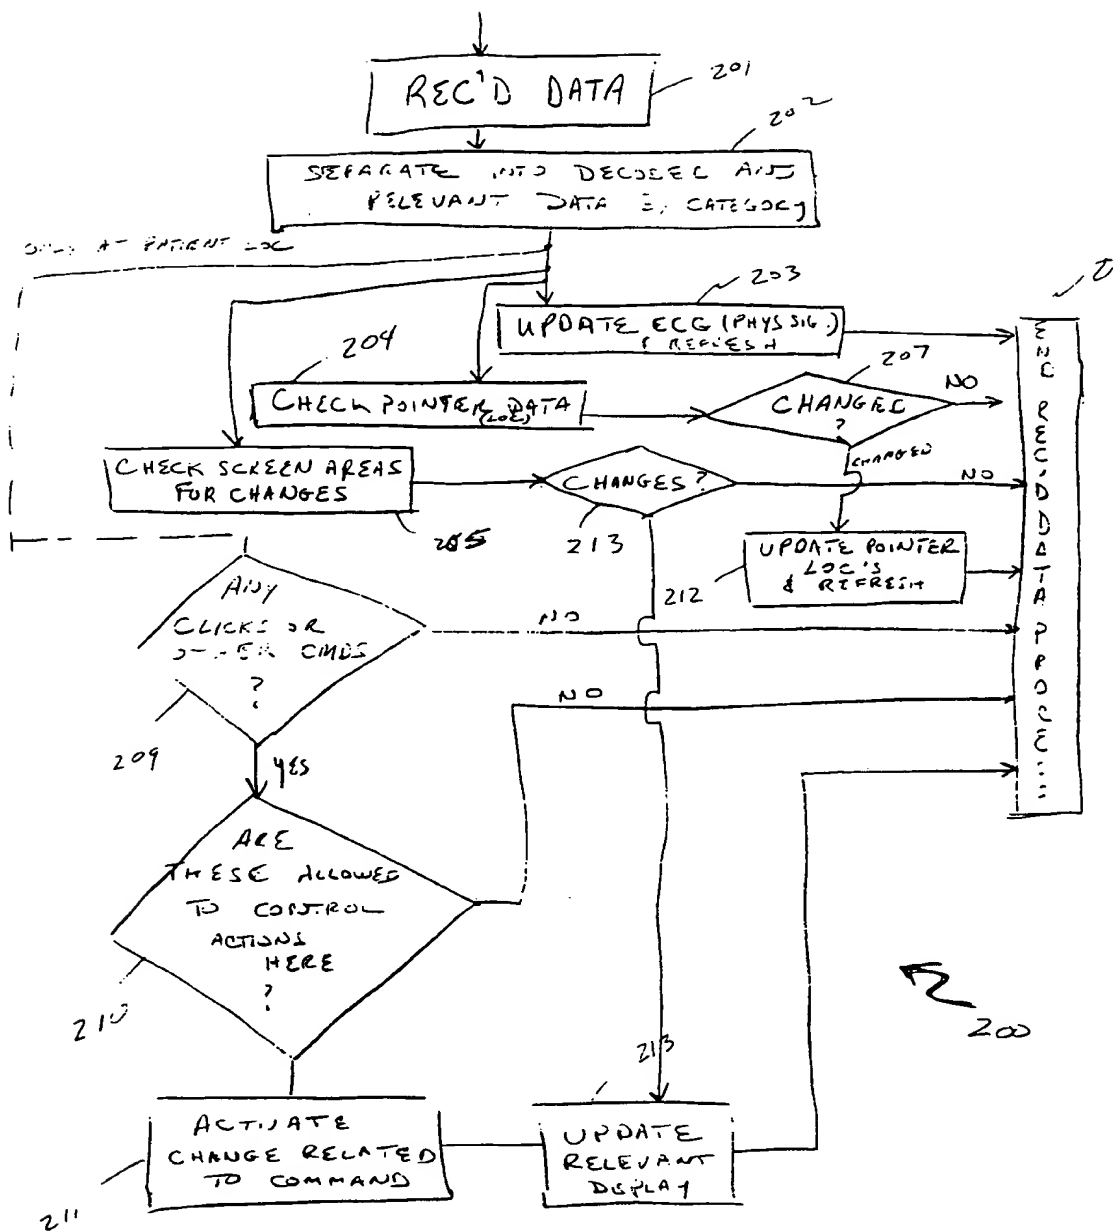 REC'D DATA
201
202
SEPARATE INTO DECODED AND
RELEVANT DATA CATEGORY
AT PATIENT LOC
203
UPDATE ECG (PHYS SIG.)
& REFRESH
204
CHECK POINTER DATA
(LOC)
207
CHANGED
?
NO
CHANGED
CHECK SCREEN AREAS
FOR CHANGES
205
CHANGES?
213
NO
UPDATE POINTER
LOC'S
& REFRESH
212
END REC'D DATA
ANY
CLICKS OR
OTHER CMDS
?
NO
209
YES
NO
ARE
THESE ALLOWED
TO CONTROL
ACTIONS
HERE
?
210
200
213
ACTIVATE
CHANGE RELATED
TO COMMAND
211
UPDATE
RELEVANT
DISPLAY